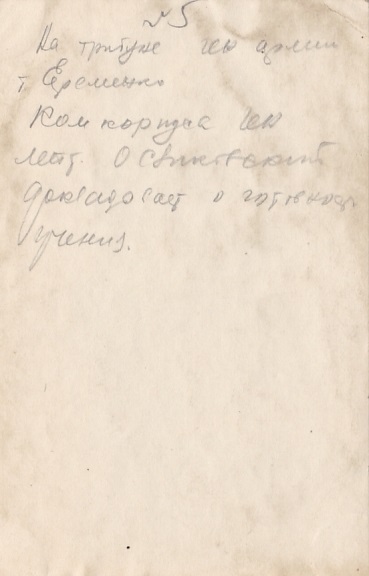 № 5
На трибуне ген армии
т Еременко
Ком корпуса ген
лейт. Осликовский
докладывает о готовност
учения.